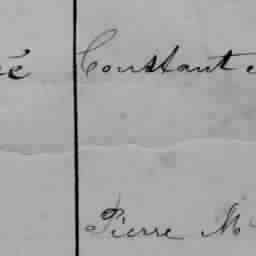 Constant
Pierre M